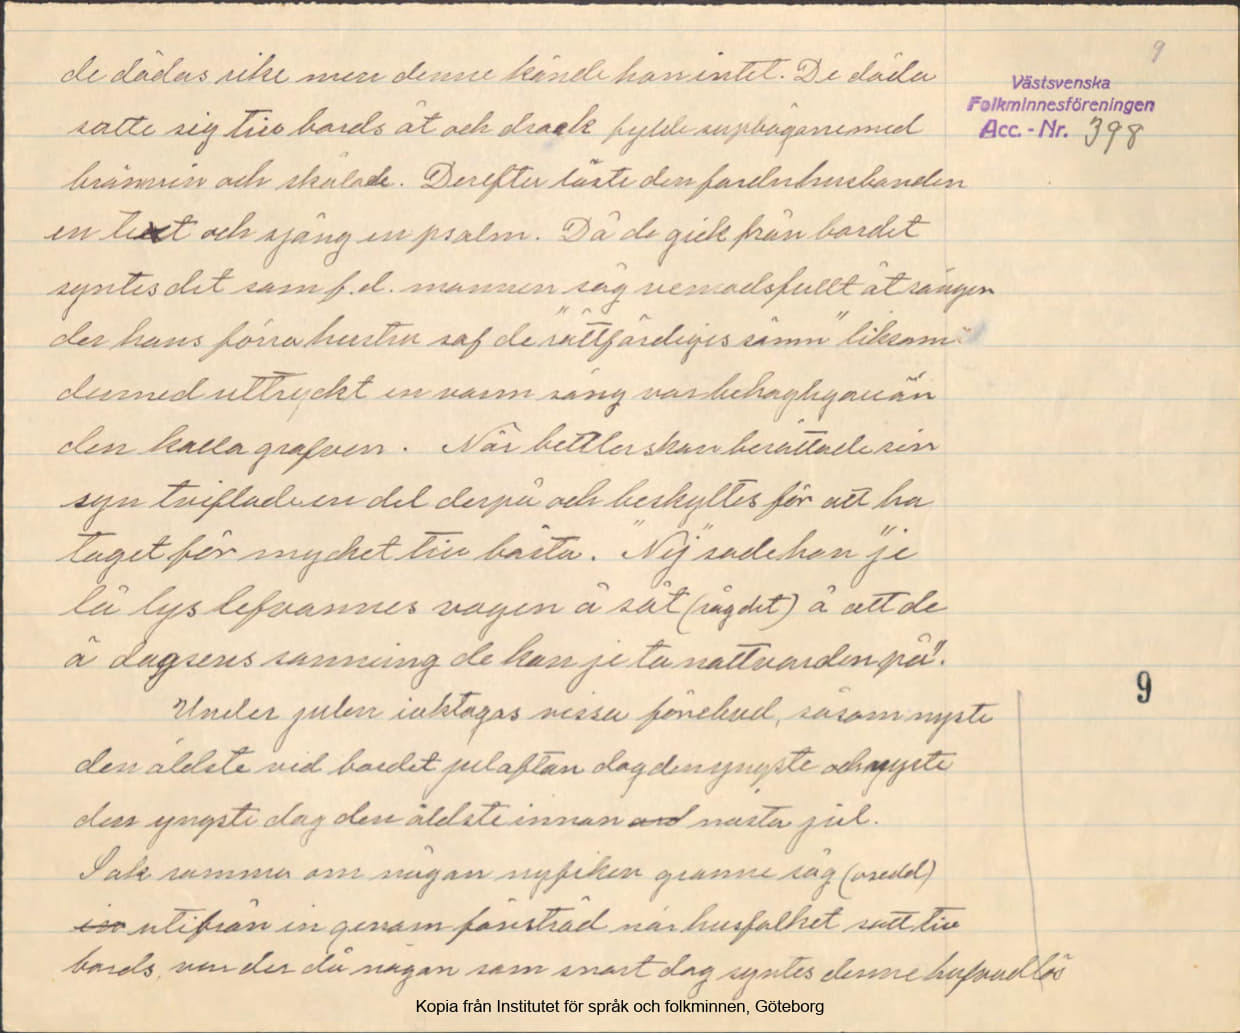 9
Västsvenska
Folkminnesföreningen
Acc. - Nr. 398
de dödas rike men denne kände han intet. De döda
satte sig till bords åt och drack fyllde supbägarne med
brännvin och skålade. Derefter läste den fordna husbonden
en text och sjöng en psalm. Då de gick från bordet
syntes det som f. d. mannen såg vemodsfullt åt sängen
der hans förra hustru sof de "rättfärdiges sömn" liksom
dermed uttryckt en varm säng var behagligare än
den kalla grafven. När berättade sin
syn tviflade en del derpå och beskyltes för att ha
taget för mycket till bästa. "Nej" sade han "je
lå lys lefvannes vagen å såt (såg det) å att de
å dagsens sanning de kan je ta nattvarden på".
Under julen iakttogos vissa förebud, såsom nyste
den äldste vid bordet julaftan dog den yngste och nyste
den yngste dog den äldste innan nästa jul.
Sak samma om någon nyfiken granne såg (oredd)
utifrån in genom fönstret när husfolket satt till
bords, var der då någon som snart dog syntes denne hufvudlös
9
Kopia från Institutet för språk och folkminnen, Göteborg